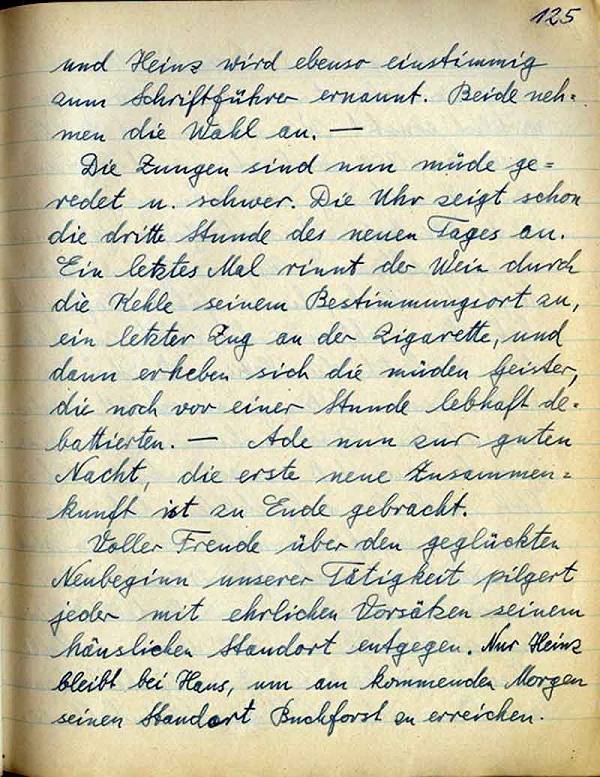 125
und Heinz wird ebenso einstimmig
zum Schriftführer ernannt. Beide neh=
men die Wahl an. —
Die Zungen sind nun müde ge=
redet u. schwer. Die Uhr zeigt schon
die dritte Stunde des neuen Tages an.
Ein letztes Mal rinnt der Wein durch
die Kehle seinem Bestimmungsort zu,
ein letzter Zug an der Zigarette, und
dann erheben sich die müden Geister,
die noch vor einer Stunde lebhaft de=
battierten. — Ade nun zur guten
Nacht, die erste neue Zusammen=
kunft ist zu Ende gebracht.
Voller Freude über den geglückten
Neubeginn unserer Tätigkeit pilgert
jeder mit ehrlichen Vorsätzen seinem
häuslichen Standort entgegen. Nur Heinz
bleibt bei Hans, um am kommenden Morgen
seinen Standort Buchforst zu erreichen.